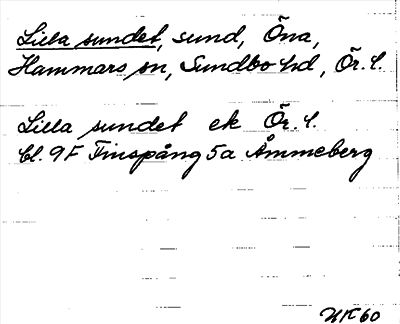 Lilla sundet, sund, Öna,
Hammars sn, Sundbo hd, Ör. l.
Lilla sundet ek Ör. l.
bl. 9F Finspång 5a Åmmeberg
60